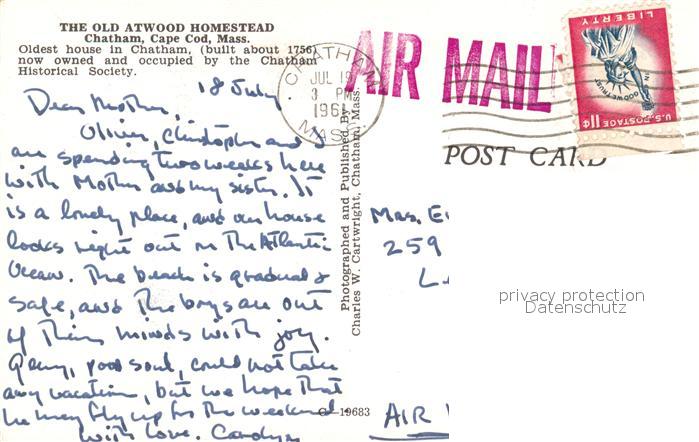 THE OLD ATWOOD HOMESTEAD
Chatham, Cape Cod, Mass.
Oldest house in Chatham, (built about 1756)
now owned and occupied by the Chatham
Historical Society.
18 July
Dear Mother,
Oliver, Christopher and I
are spending two weeks here
with Mother and my sister. It
is a lovely place, and our house
looks right out on the Atlantic
Ocean. The beach is gradual &
safe, and the boys are out
of their minds with joy.
poor soul, could not take
any vacation, but we hope that
he may fly up for the weekend.
With love, Carolyn
CHATHAM
JUL 19
3 PM
1961
MASS.
AIR MAIL
LIBERTY
IN GOD WE TRUST
U.S. POSTAGE 11¢
POST CARD
Photographed and Published By
Charles W. Cartwright, Chatham, Mass.
Mrs.
259
L
privacy protection
Datenschutz
AIR
19683